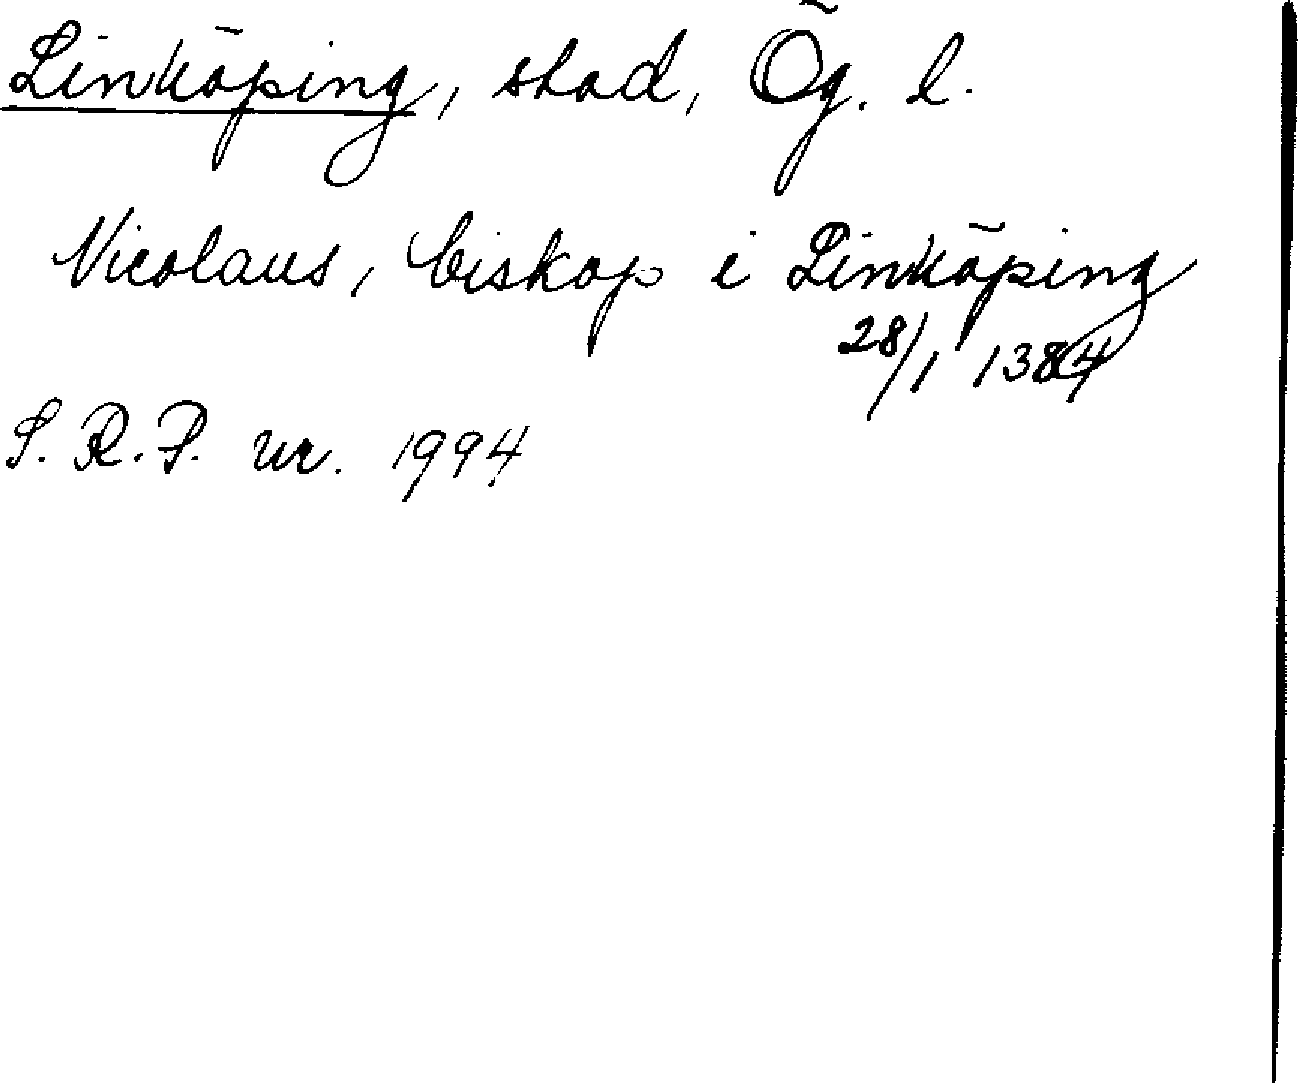 Linköping, stad, Ög. l.
Nicolaus, biskop i Linköping
28/1 1384
S. R. P. nr. 1994